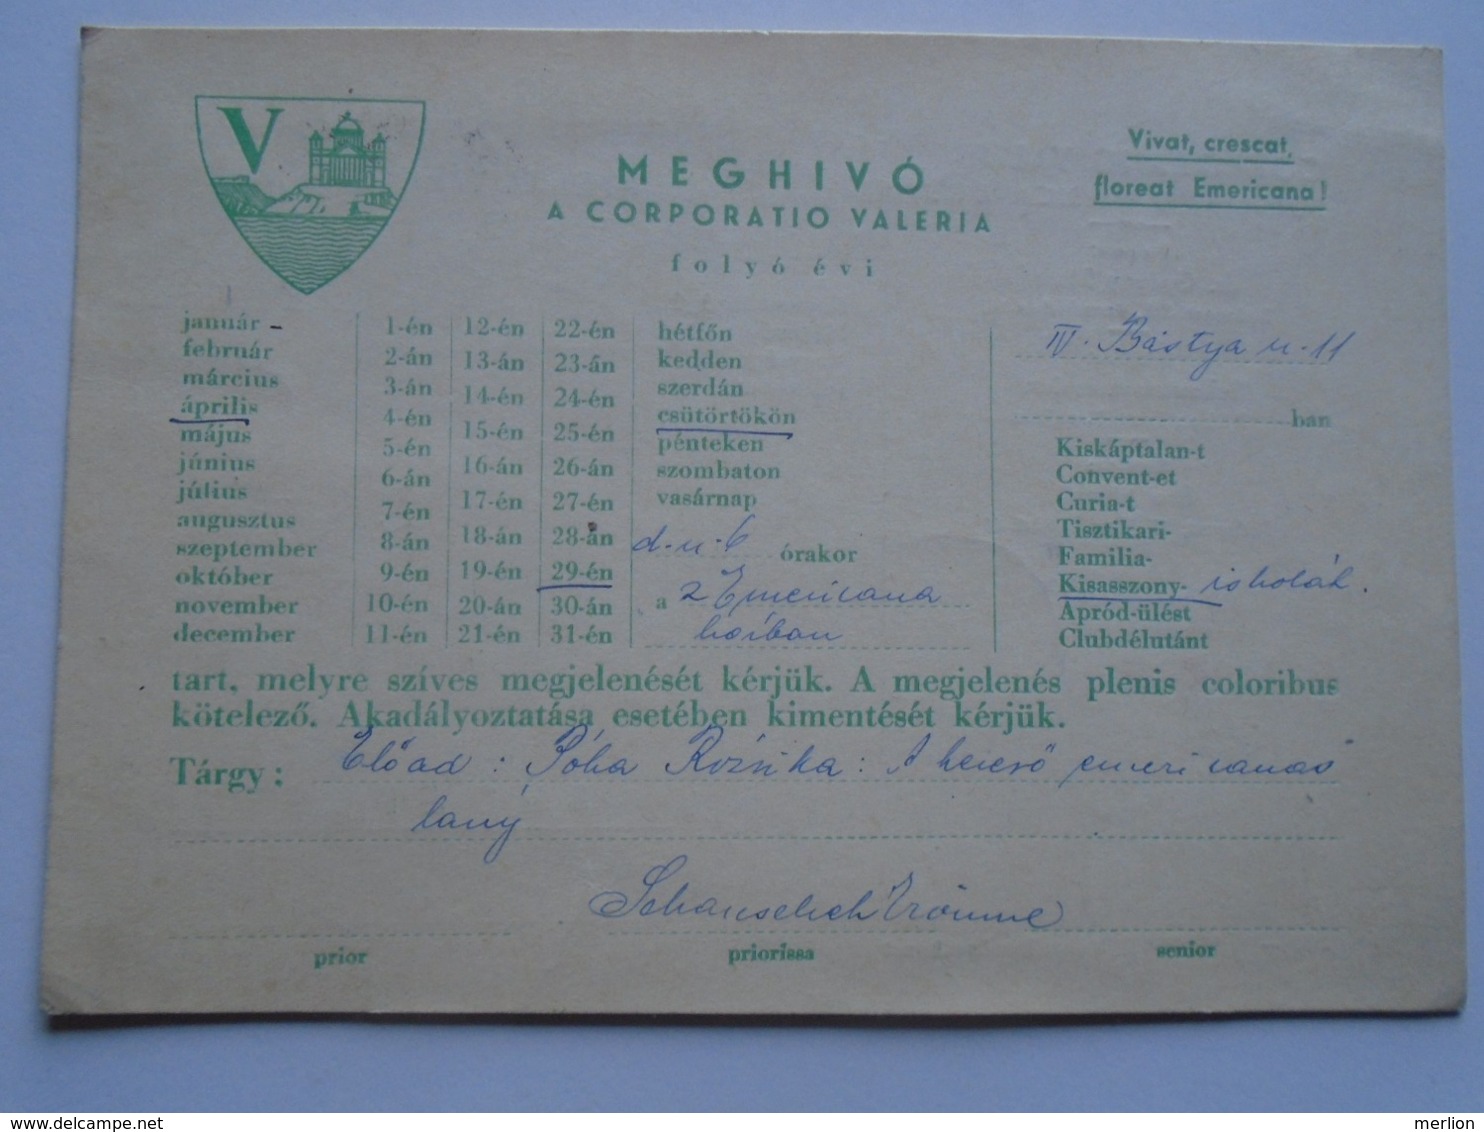 V
MEGHIVÓ
A CORPORATIO VALERIA
folyó évi
Vivat, crescat,
floreat Emericana!
január
február
március
április
május
június
július
augusztus
szeptember
október
november
december
1-én
2-án
3-án
4-én
5-én
6-án
7-én
8-án
9-én
10-én
11-én
12-én
13-án
14-én
15-én
16-án
17-én
18-án
19-én
20-án
21-én
22-én
23-án
24-én
25-én
26-án
27-én
28-án
29-én
30-án
31-én
hétfőn
kedden
szerdán
csütörtökön
pénteken
szombaton
vasárnap
d.u. 6 órakor
a z Emericana
házban
IV. Bástya u. 11
ban
Kiskáptalan-t
Convent-et
Curia-t
Tisztikari-
Familia-
Kisasszony- iskolák.
Apród-ülést
Clubdélutánt
tart, melyre szíves megjelenését kérjük. A megjelenés plenis coloribus
kötelező. Akadályoztatása esetében kimentését kérjük.
Tárgy: Előad: Póka Rózsika: A kereső emericanás
lány
prior
priorissa
senior
delcampe.net
merlion